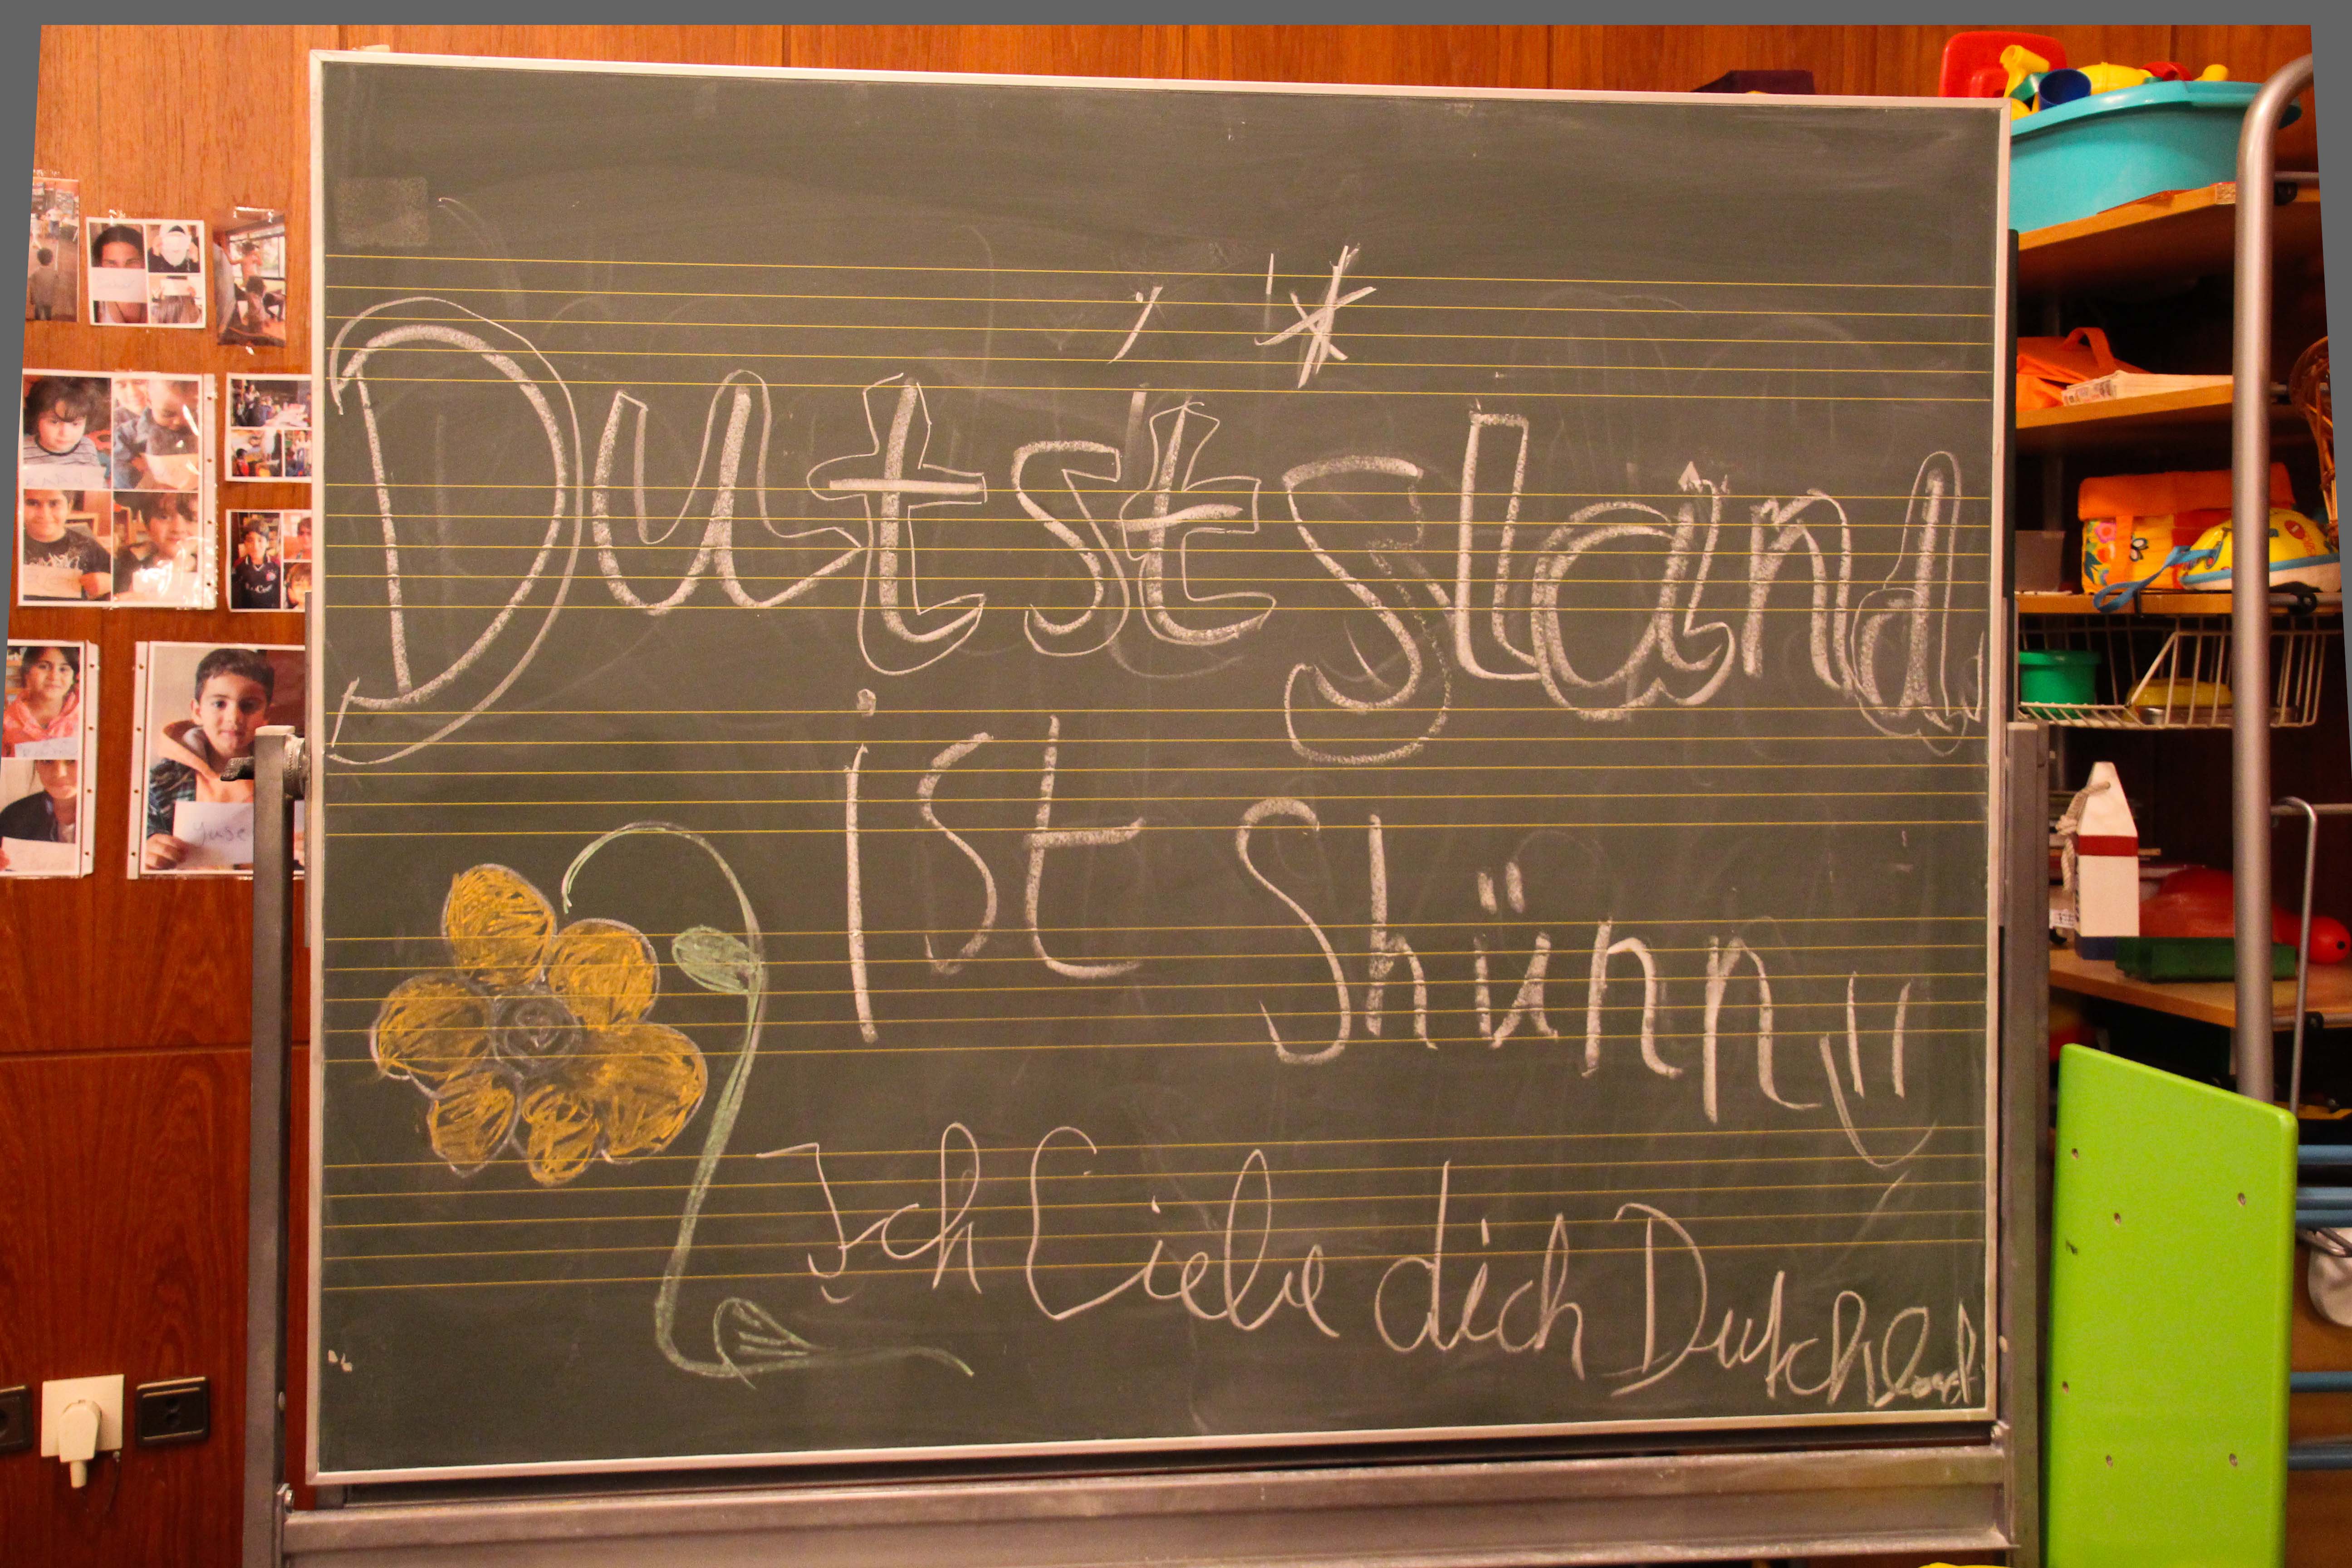 DutstSland
ist Shünn
Ich Liebe dich Dutchland